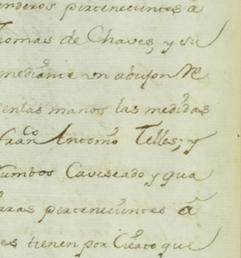 pertenecientes a
Thomas de Chaves, y su
mediante un abujon
manos las medidas
Fran.co Antonio Telles; y
Rumbos Caveseado y qua
varas pertenecientes á
tienen por Cierto que